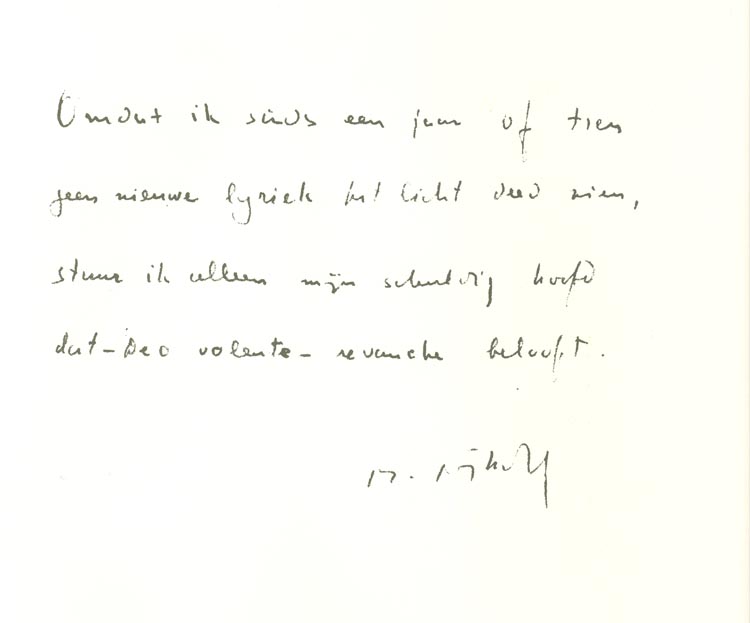 Omdat ik sinds een jaar of tien
geen nieuwe lyriek het licht deed zien,
stuur ik alleen mijn schuldig hoofd
dat – Deo volente – revanche belooft.
M. Nijhoff